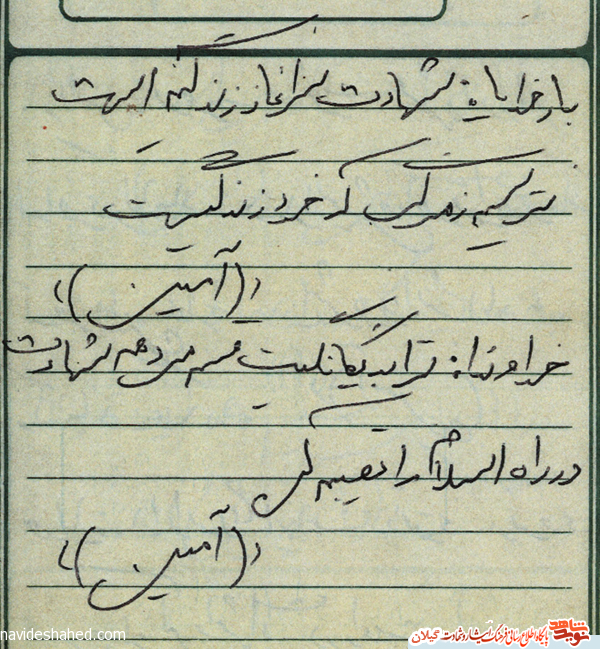 بار خدایا: شهادت سرآغاز زندگیست
نترسیم ز مرگ که خود زندگیست
«(آمین)»
خداوندا: ترا به یگانگیت قسم می دهم شهادت
در راه اسلام را نصیبم کن
«(آمین)»
navideshahed.com
نوید شاهد پایگاه اطلاع رسانی فرهنگ ایثار و شهادت گیلان